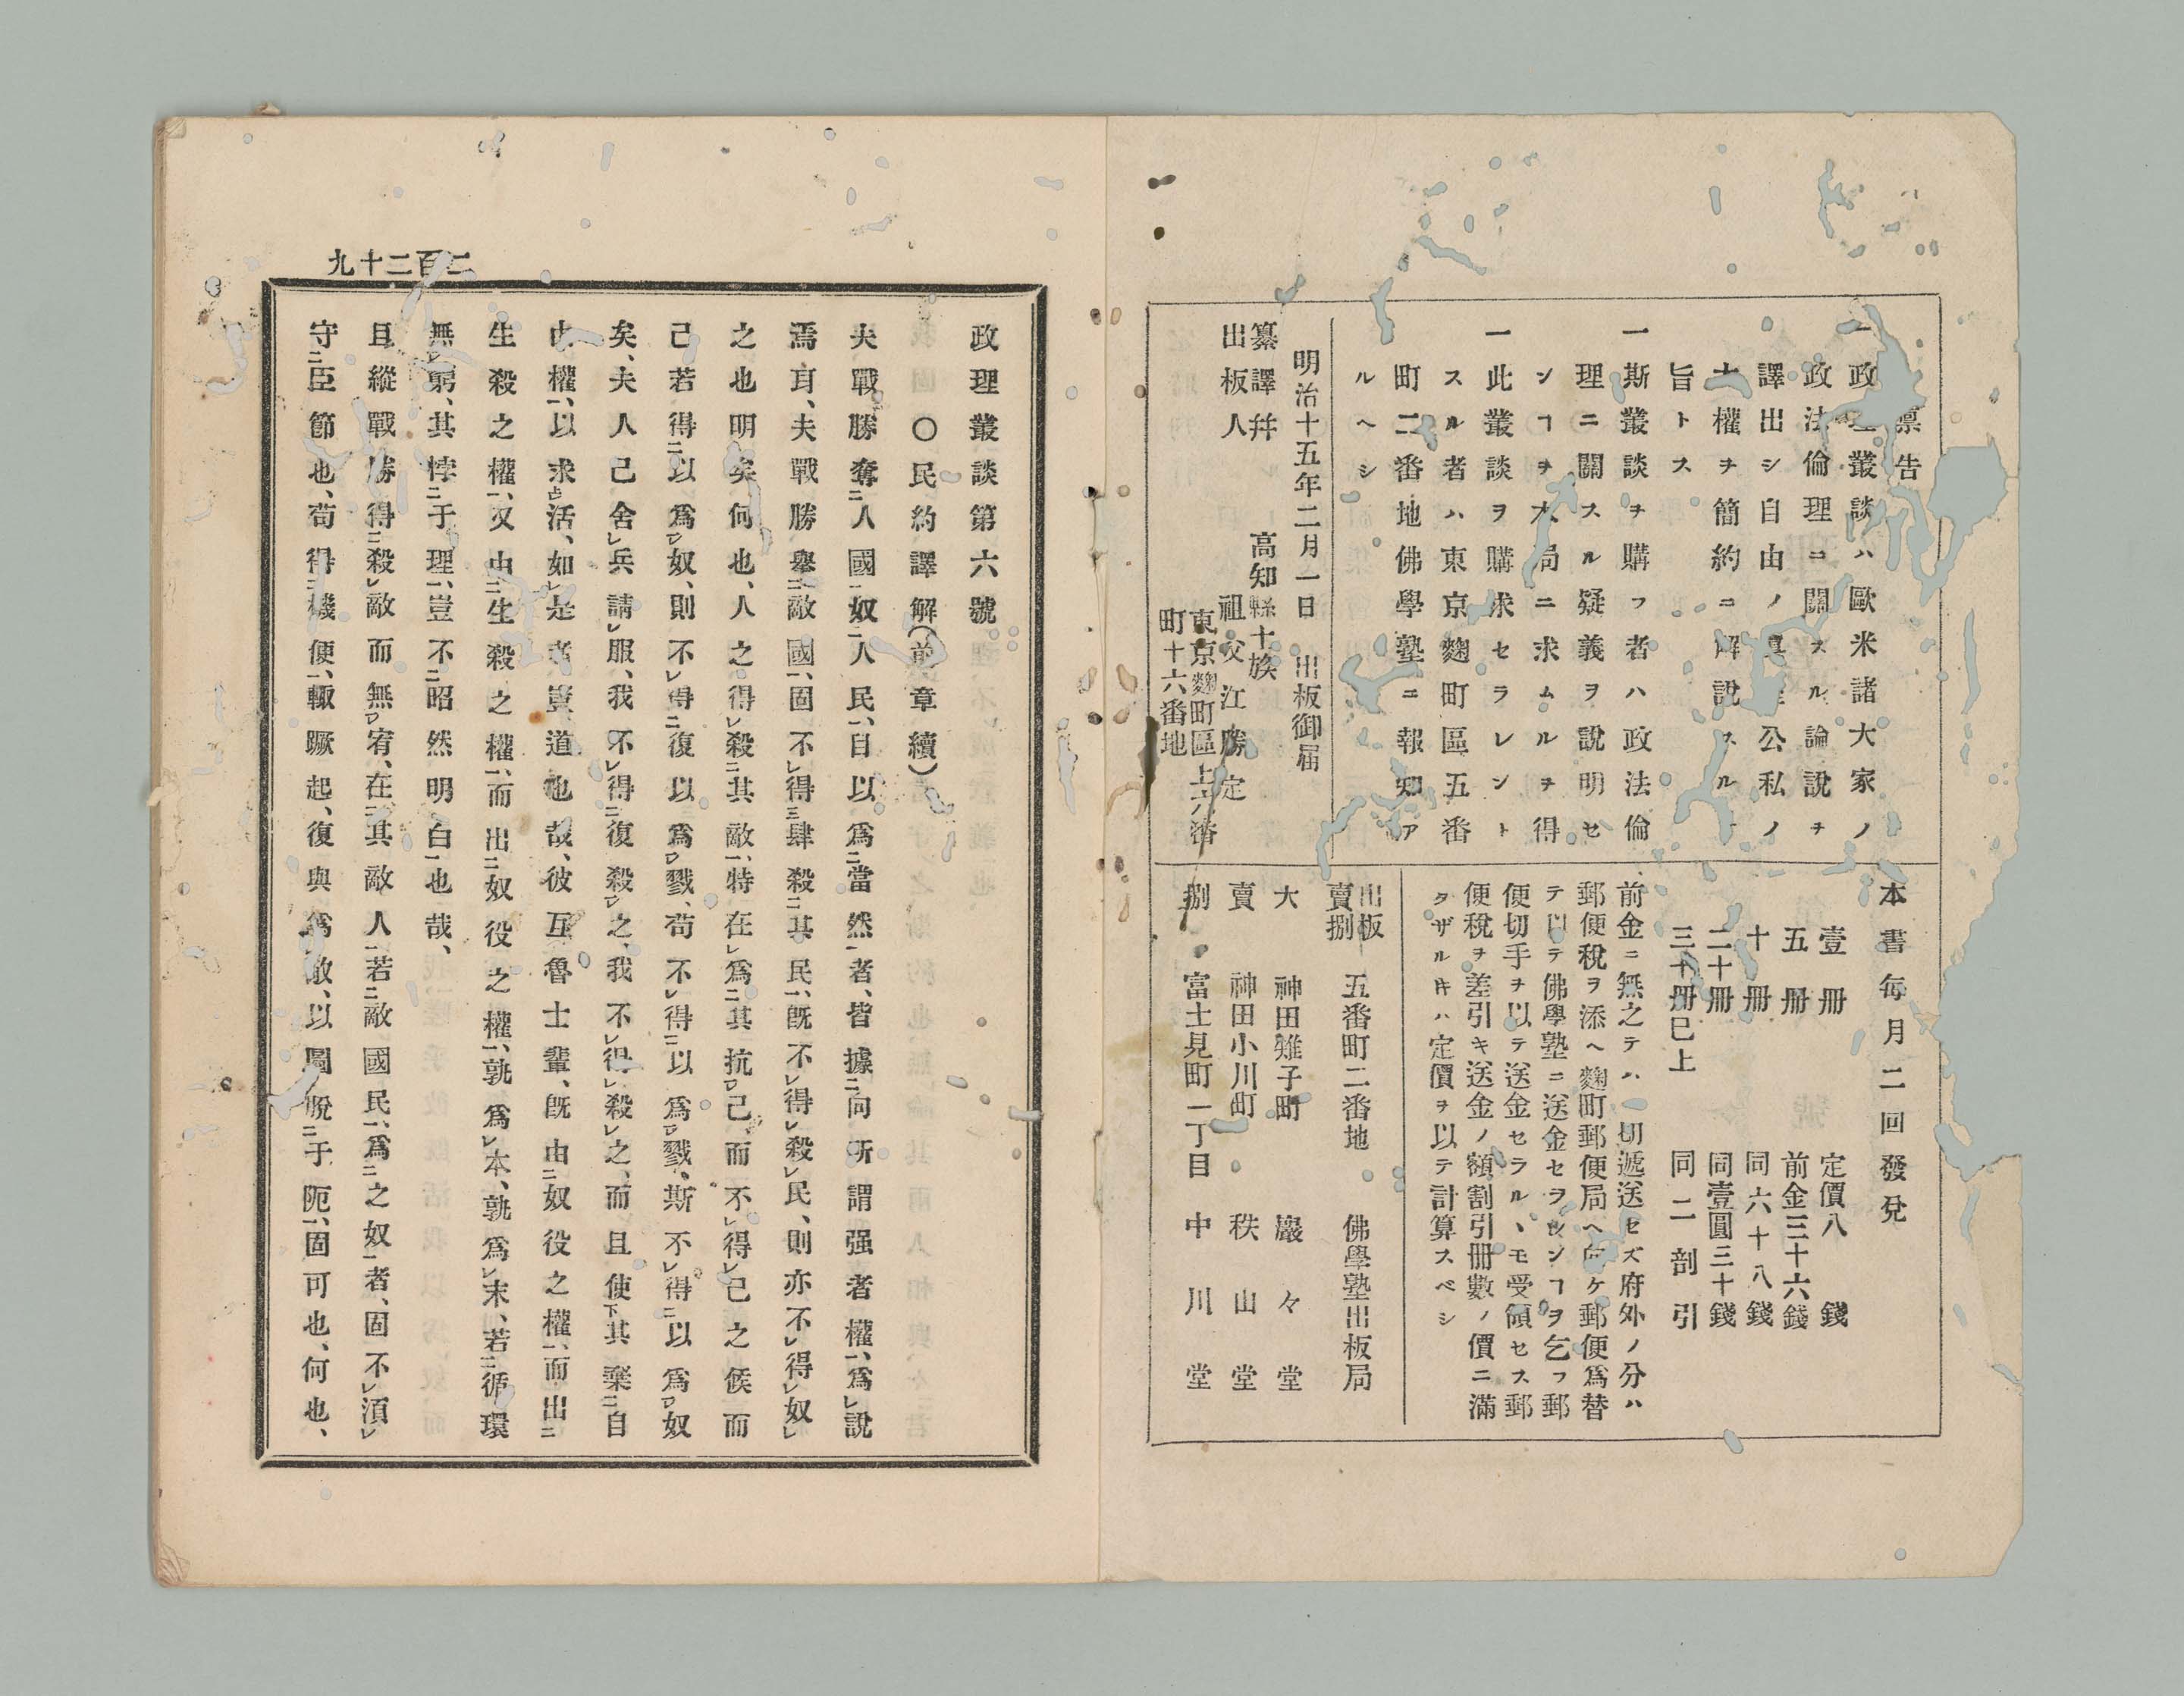 稟告
一政理叢談ハ歐米諸大家ノ
政法倫理ニ關スル論説ヲ
譯出シ自由ノ公私ノ
權ヲ簡約ニ解説スル
旨トス
一斯叢談ヲ購フ者ハ政法倫
理ニ關スル疑義ヲ説明セ
ンヿヲ本局ニ求ムルヲ得
一此叢談ヲ購求セラレント
スル者ハ東京麴町區五番
町二番地佛學塾ニ報知ア
ルヘシ
明治十五年二月一日 出板御届
纂譯幷 高知縣士族
出板人 祖父江勝定
東京麴町區上六番
町十六番地
本書毎月二回發兌
壹冊 定價八錢
五冊 前金三十六錢
十冊 同六十八錢
二十冊 同壹圓三十錢
三十冊已上 同二割引
前金ニ無之テハ一切遞送セズ府外ノ分ハ
郵便稅ヲ添ヘ麴町郵便局ヘ向ケ郵便爲替
テ以テ佛學塾ニ送金セヲレンヿヲ乞フ郵
便切手ヲ以テ送金セラルヽモ受領セス郵
便稅ヲ差引キ送金ノ額割引冊數ノ價ニ滿
タザルキハ定價ヲ以テ計算スベシ
出板
賣捌 五番町二番地 佛學塾出板局
大 神田雉子町 巖々堂
賣 神田小川町 秩山堂
捌 富士見町一丁目 中川堂
二百二十九
政理叢談第六號
〇民約譯解(前章續)
夫戰勝奪二人國一奴二人民一、自以爲二當然一者、皆據二向所謂强者權一、爲レ說
焉耳、夫戰勝擧二敵國一、固不レ得三肆殺二其民一、旣不レ得レ殺レ民、則亦不レ得レ奴レ
之也明矣、何也、人之得レ殺二其敵一、特在レ爲二其抗一レ己、而不レ得レ已之候而
已、若得二以爲一レ奴、則不レ得二復以爲一レ戮、苟不レ得二以爲一レ戮、斯不レ得二以爲一レ奴
矣、夫人已舍レ兵請レ服、我不レ得二復殺一レ之、我不レ得レ殺レ之、而且使下其棄二自
由權一、以求上レ活、如レ是者豈道也哉、彼互魯士輩、旣由二奴役之權一、而出二
生殺之權一、又由二生殺之權一、而出二奴役之權一、孰爲レ本、孰爲レ末、若二循環
無一レ窮、其悖二于理一、豈不二昭然明白一也哉、
且縱戰勝得二殺レ敵而無一レ宥、在二其敵人一若二敵國民一、爲二之奴一者、固不レ須レ
守二臣節一也、苟得二機便一、輙蹶起、復與爲敵、以圖脫二于阨一、固可也、何也、